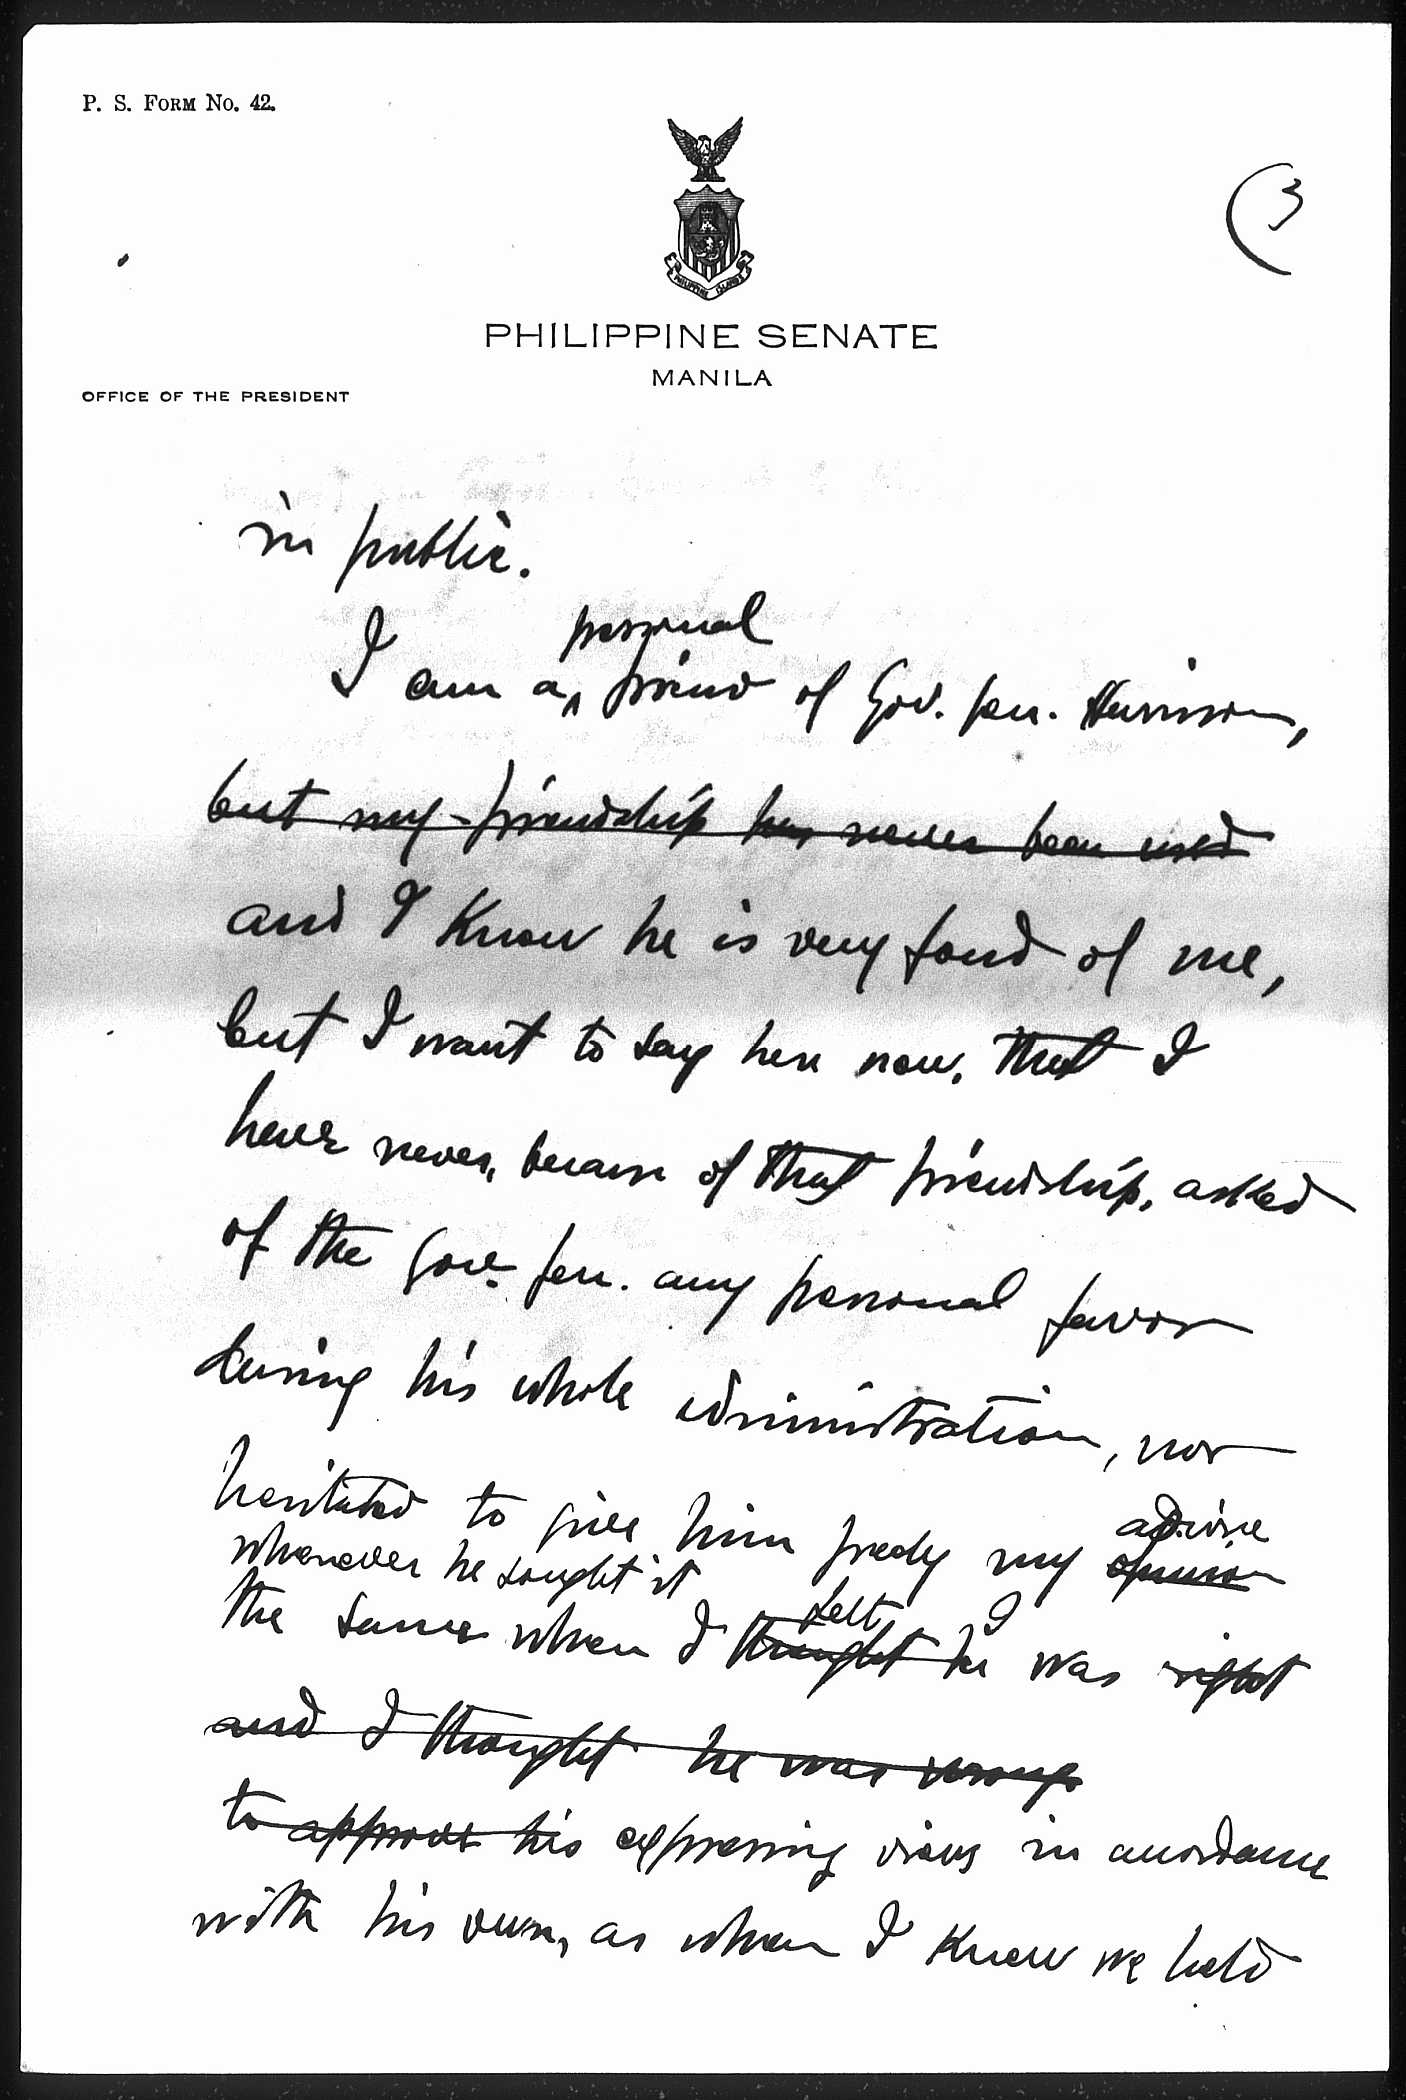 P. S. FORM No. 42.
(3
PHILIPPINE ISLANDS
PHILIPPINE SENATE
MANILA
OFFICE OF THE PRESIDENT
in public.
personal
I am a friend of Gov. Gen. Harrison,
but my friendship has never been used
and I know he is very fond of me,
but I want to say here now, that I
have never, because of that friendship, asked
of the Gov. Gen. any personal favor
during his whole administration, nor
advise
hesitated to give him freely my opinion
whenever he sought it
felt I
the same when I thought he was right
and I thought he was wrong
to approve his expressing views in accordance
with his own, as when I knew we held